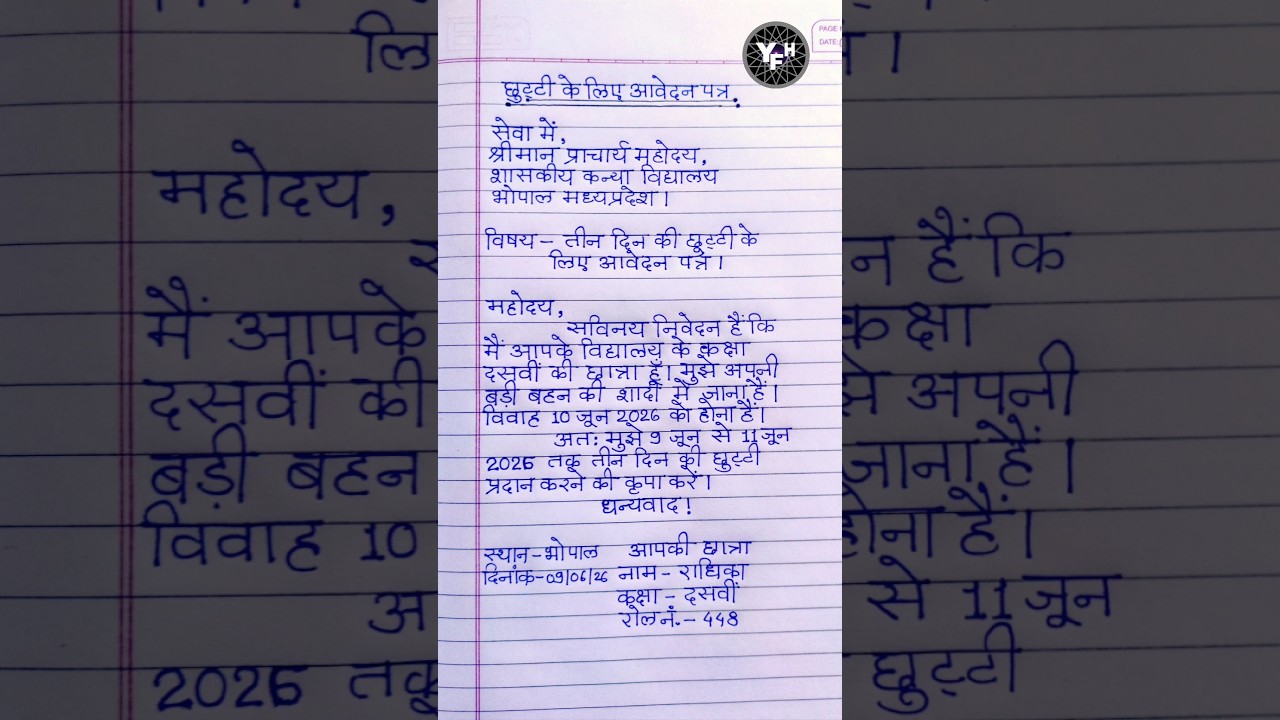 PAGE
DATE:
YFH
छुट्टी के लिए आवेदन पत्र.
सेवा में,
श्रीमान प्राचार्य महोदय,
शासकीय कन्या विद्यालय
भोपाल मध्यप्रदेश।
विषय - तीन दिन की छुट्टी के
लिए आवेदन पत्र।
महोदय,
सविनय निवेदन हैं कि
मैं आपके विद्यालय के कक्षा
दसवीं की छात्रा हूँ। मुझे अपनी
बड़ी बहन की शादी में जाना हैं।
विवाह 10 जून 2026 को होना हैं।
अतः मुझे 9 जून से 11 जून
2026 तक तीन दिन की छुट्टी
प्रदान करने की कृपा करें।
धन्यवाद!
स्थान - भोपाल आपकी छात्रा
दिनांक - 09/06/26 नाम - राधिका
कक्षा - दसवीं
रोल नं. - 448